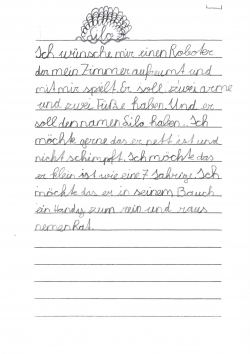 Silo
Ich wünsche mir einen Roboter
der mein Zimmer aufreumt und
mit mir spilt. Er soll zwei arme
und zwei Füße haben. Und er
soll den namen Silo haben. Ich
möchte gerne das er nett ist und
nicht schimpft. Ich möchte das
er klein ist wie eine 7 Jährige. Ich
möchte das er in seinem Bauch
ein Handy zum rein und raus
nemen hat.